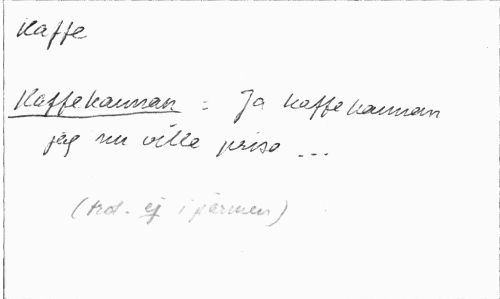 Kaffe
Kaffekannan = Ja kaffekannan
jag nu ville prisa ...
ej i pärmen)